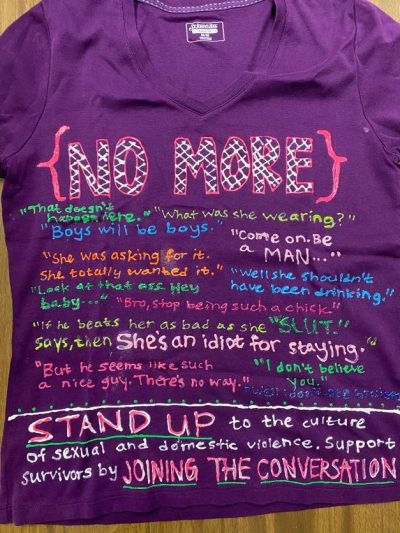 {NO MORE}
"That doesn't "What was she wearing?"
happen here."
"Boys will be boys." "Come on. Be
a MAN..."
"She was asking for it.
She totally wanted it." "Well she shouldn't
have been drinking."
"Look at that ass. Hey
baby..." "Bro, stop being such a chick."
"If he beats her as bad as she "SLUT."
says, then She's an idiot for staying."
"But he seems like such "I don't believe
a nice guy. There's no way." you."
STAND UP to the culture
of sexual and domestic violence. Support
survivors by JOINING THE CONVERSATION